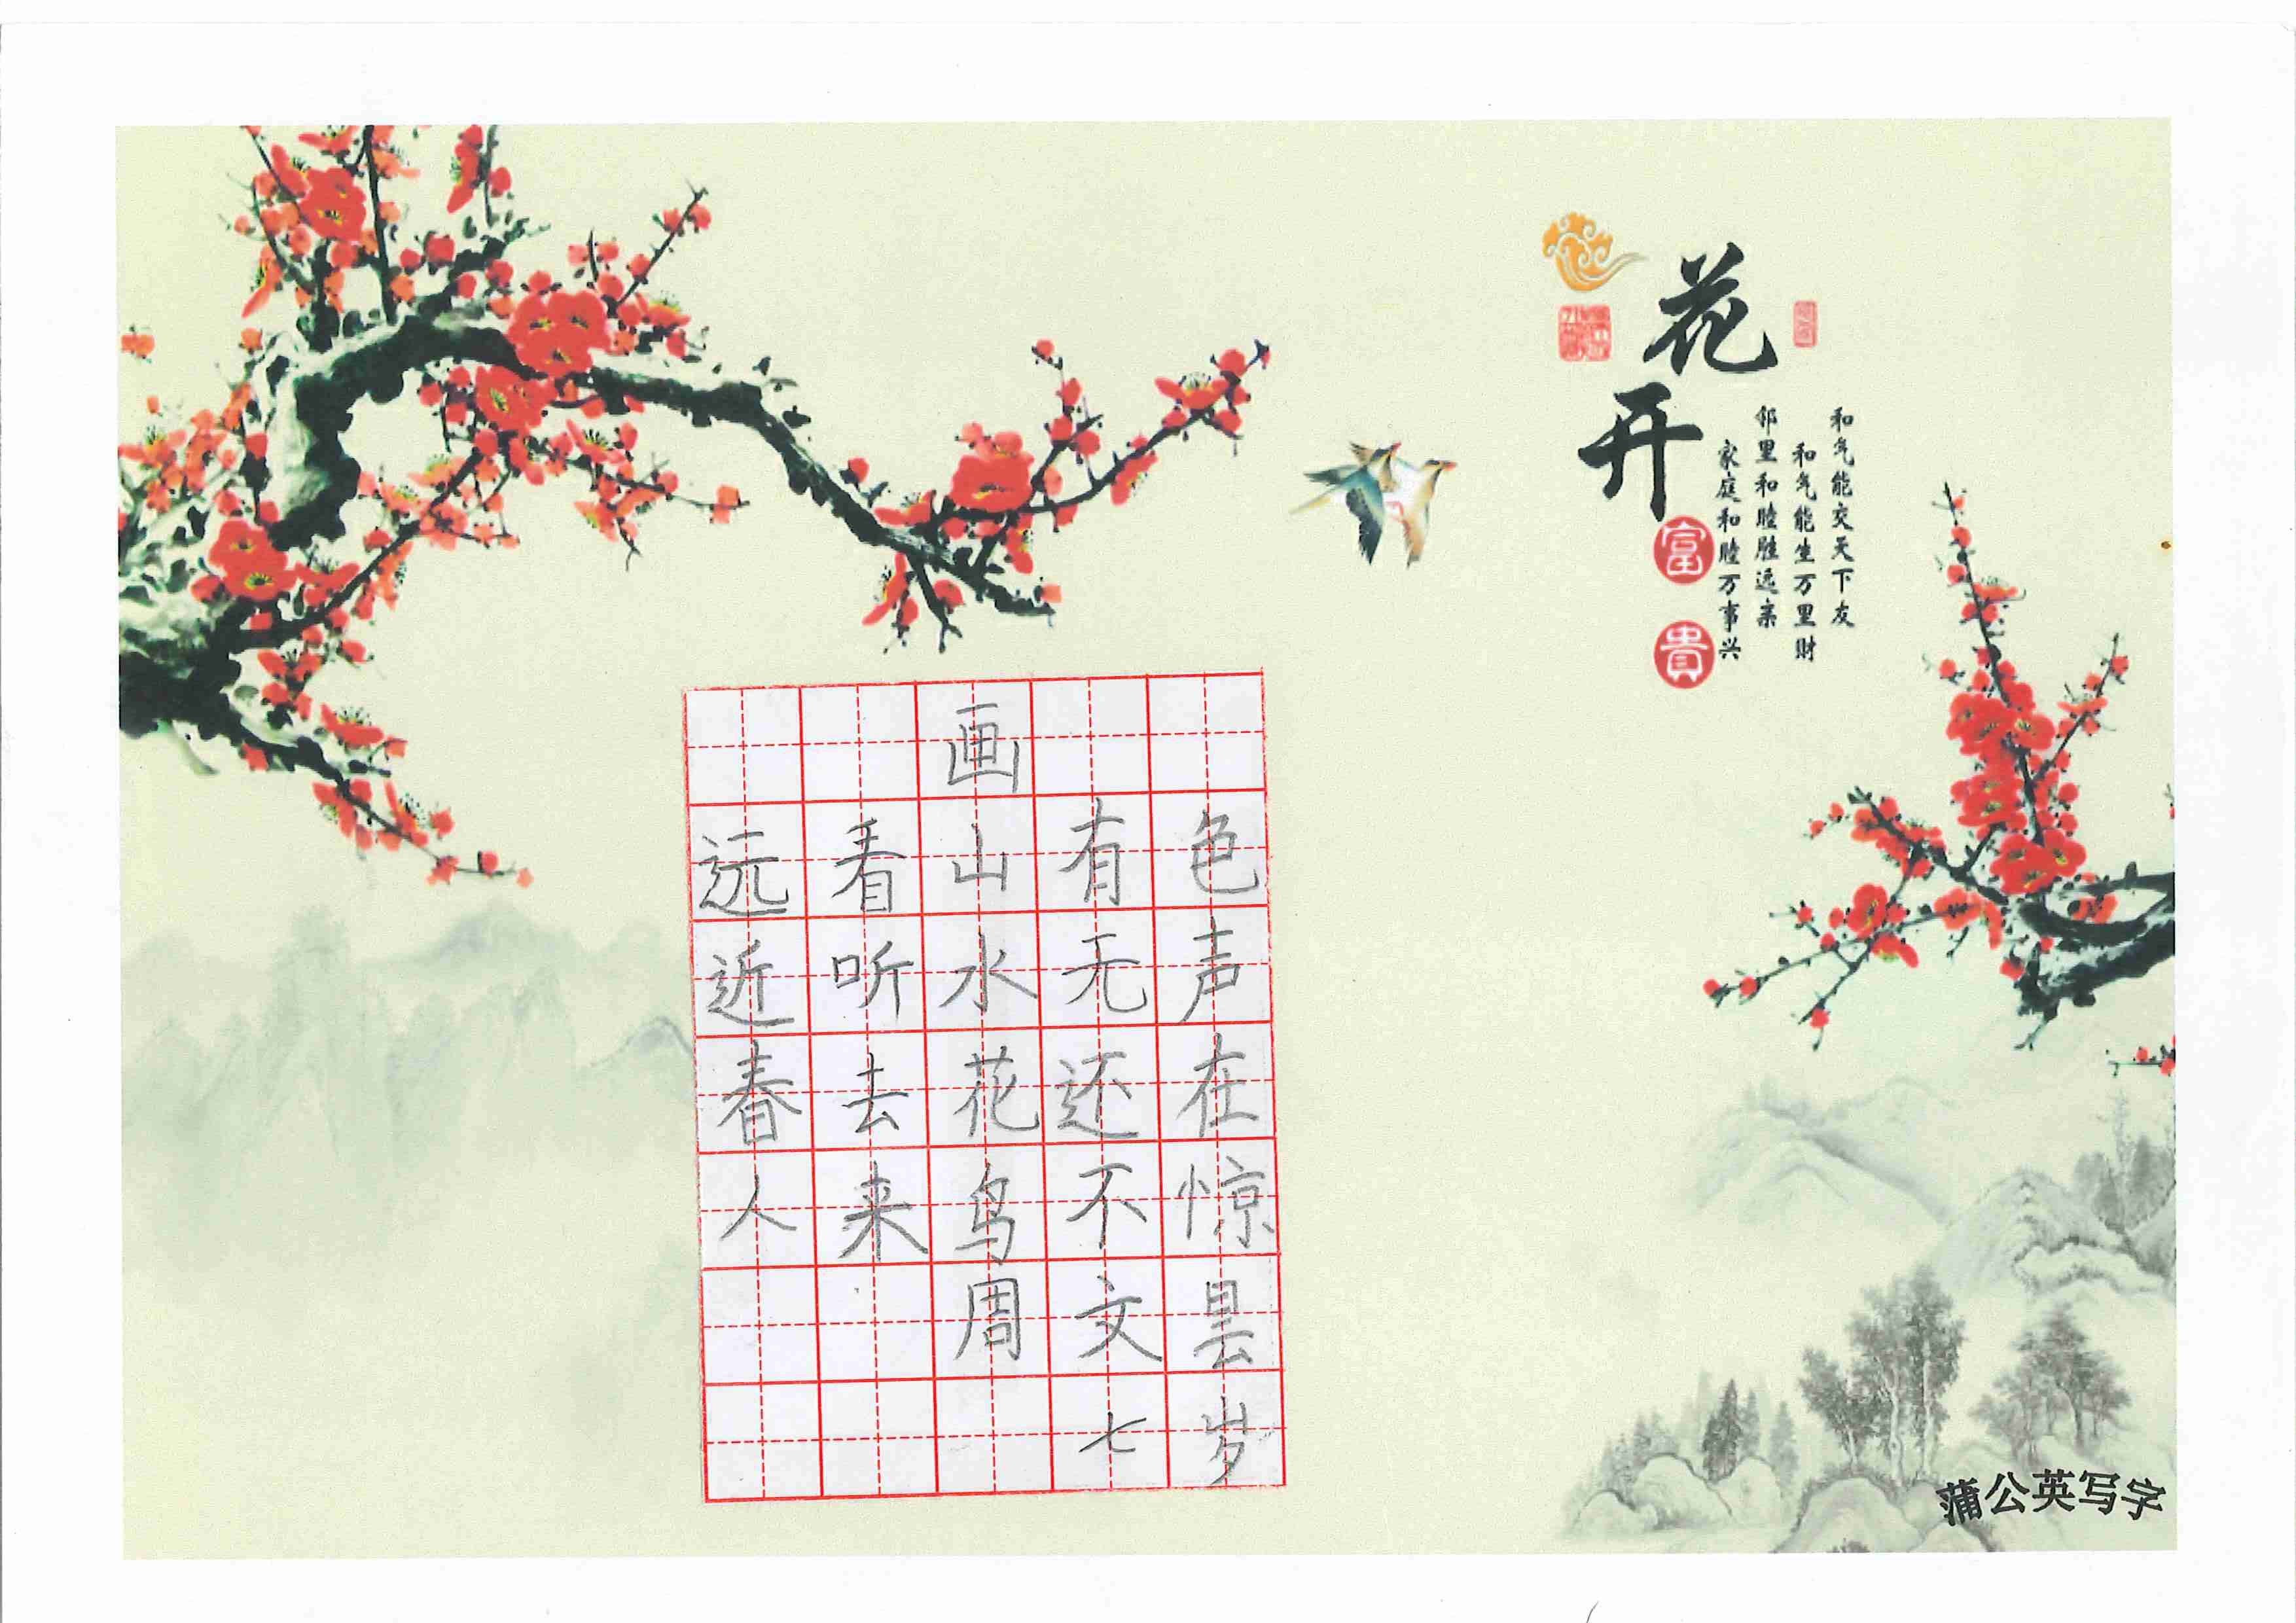 花
开
富
貴
和气能交天下友
和气能生万里财
邻里和睦胜远亲
家庭和睦万事兴
画
远看山有色
近听水无声
春去花还在
人来鸟不惊
周文昙
七岁
蒲公英写字